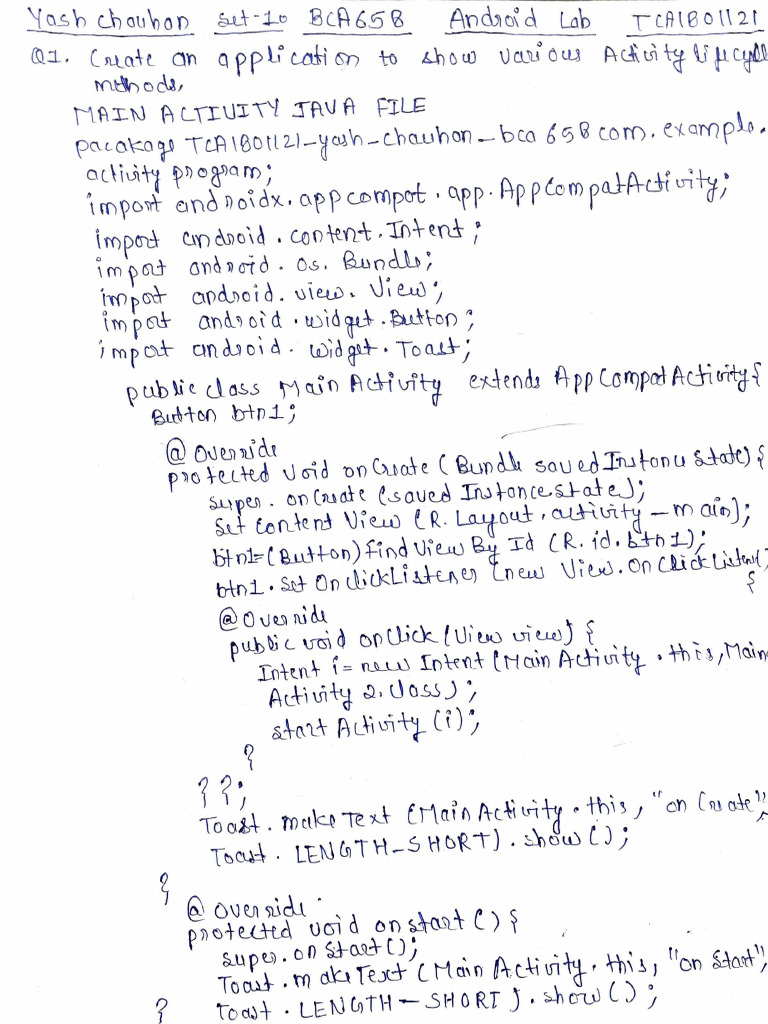 Yash chauhan set-10 BCA658 Android Lab TCA1801121
Q1. Create an application to show various Activity lifecycle
methods,
MAIN ACTIVITY JAVA FILE
pacakage TCA1801121-yash-chauhan-bca658com.example.
activity program;
import androidx.appcompat.app.AppCompatActivity;
import android.content.Intent;
import android.os.Bundle;
import android.view.View;
import android.widget.Button;
import android.widget.Toast;
public class MainActivity extends AppCompatActivity{
Button btn1;
@Override
protected void onCreate(Bundle savedInstanceState){
super.onCreate(savedInstanceState);
setContentView(R.Layout.activity-main);
btn1=(Button)findViewById(R.id.btn1);
btn1.setOnClickListener(new View.OnClickListener()
{
@Override
public void onClick(View view){
Intent i=new Intent(MainActivity.this,Main
Activity2.class);
startActivity(i);
}
}};
Toast.makeText(MainActivity.this,"onCreate",
Toast.LENGTH-SHORT).show();
}
@override
protected void onstart(){
super.onStart();
Toast.makeText(MainActivity.this,"onStart",
} Toast.LENGTH-SHORT).show();